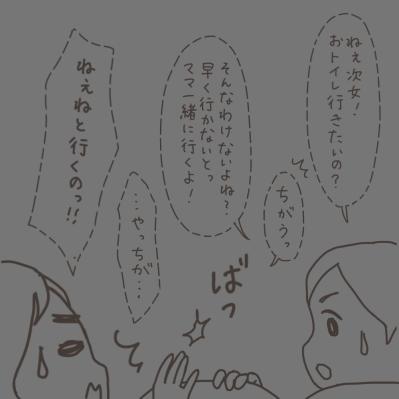 ねぇ次女！
おトイレ行きたいの？
ちがうっ
そんなわけないよね？
早く行かないとっ
ママ一緒に行くよ！
ばっ
…やっちが…
ねぇねと行くのっ！！